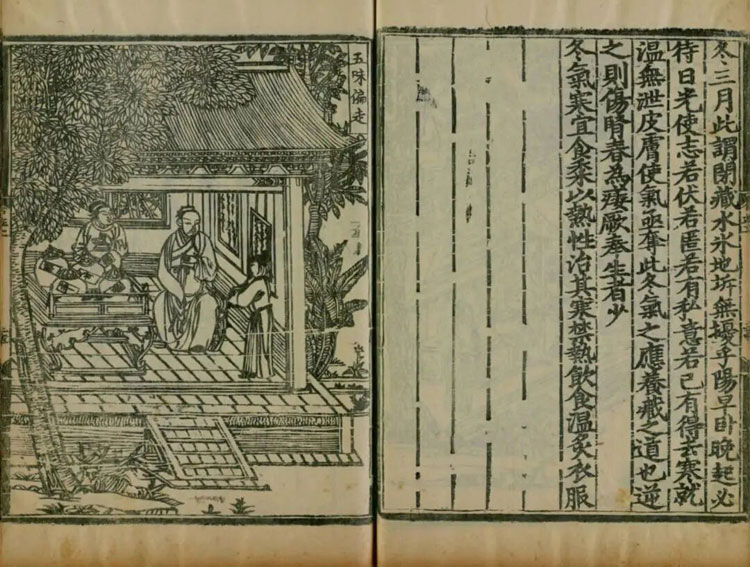 冬三月此謂閉藏水氷地坼無擾乎陽早卧晚起必
待日光使志若伏若匿若有私意若已有得去寒就
温無泄皮膚使氣亟奪此冬氣之應養藏之道也逆
之則傷腎春為痿厥奉生者少
冬氣寒宜食黍以熱性治其寒禁熱飲食温炙衣服
五味偏走